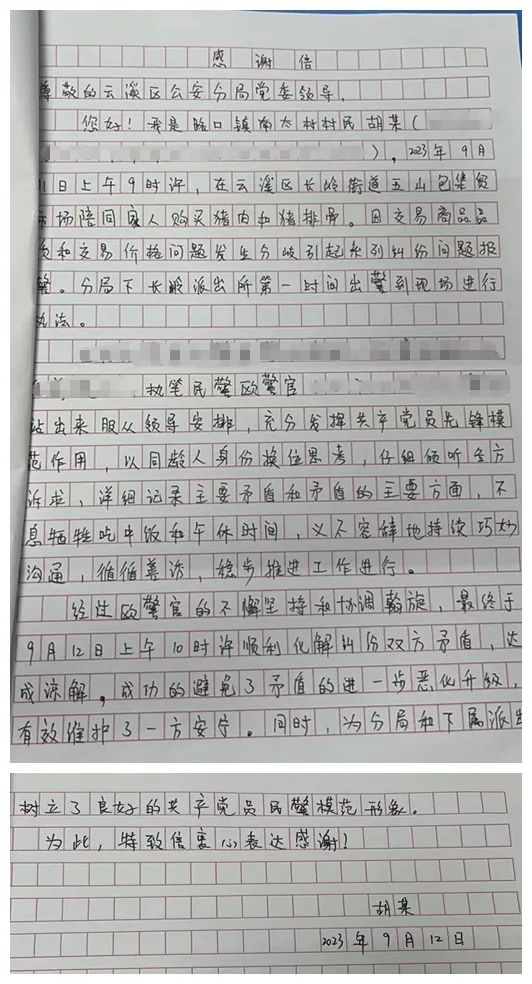 感谢信
尊敬的云溪区公安分局党委领导,
您好!我是路口镇南太村村民胡某(
),2023年9月
11日上午9时许,在云溪区长岭街道五山包集贸
市场陪同家人购买猪肉和猪排骨。因交易商品品
质和交易价格问题发生分歧引起系列纠纷问题报
警。分局下长岭派出所第一时间出警到现场进行
执法。
,执笔民警欧警官
站出来服从领导安排,充分发挥共产党员先锋模
范作用,以同龄人身份换位思考,仔细倾听全方
诉求,详细记录主要矛盾和矛盾的主要方面,不
息牺牲吃中饭和午休时间,义不容辞地持续巧妙
沟通,循循善诱,稳步推进工作进行。
经过欧警官的不懈坚持和协调斡旋,最终于
9月12日上午10时许顺利化解纠纷双方矛盾,达
成谅解。成功的避免了矛盾的进一步恶化升级,
有效维护了一方安宁。同时,为分局和下属派出
树立了良好的共产党员民警模范形象。
为此,特致信衷心表达感谢!
胡某
2023年9月12日